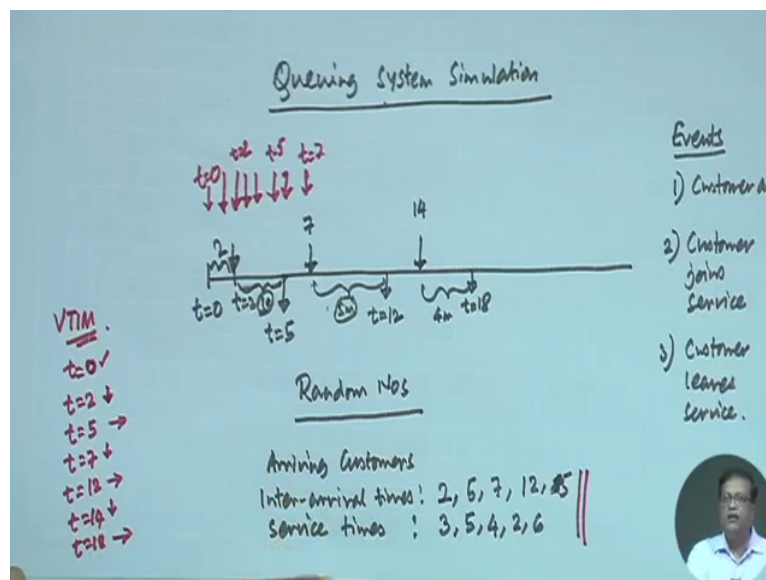 Queuing System Simulation
t=0 t=2 t=5 t=7
2 7 14
t=0 t=2 3m t=5 5m t=12 4m t=18
VTIM.
t=0✓
t=2 ↓
t=5 →
t=7 ↓
t=12 →
t=14 ↓
t=18 →
Random Nos
Arriving Customers
Inter-arrival times: 2, 5, 7, 12, 5
Service times : 3, 5, 4, 2, 6
Events
1) Customer a
2) Customer
joins
service
3) Customer
leaves
service.